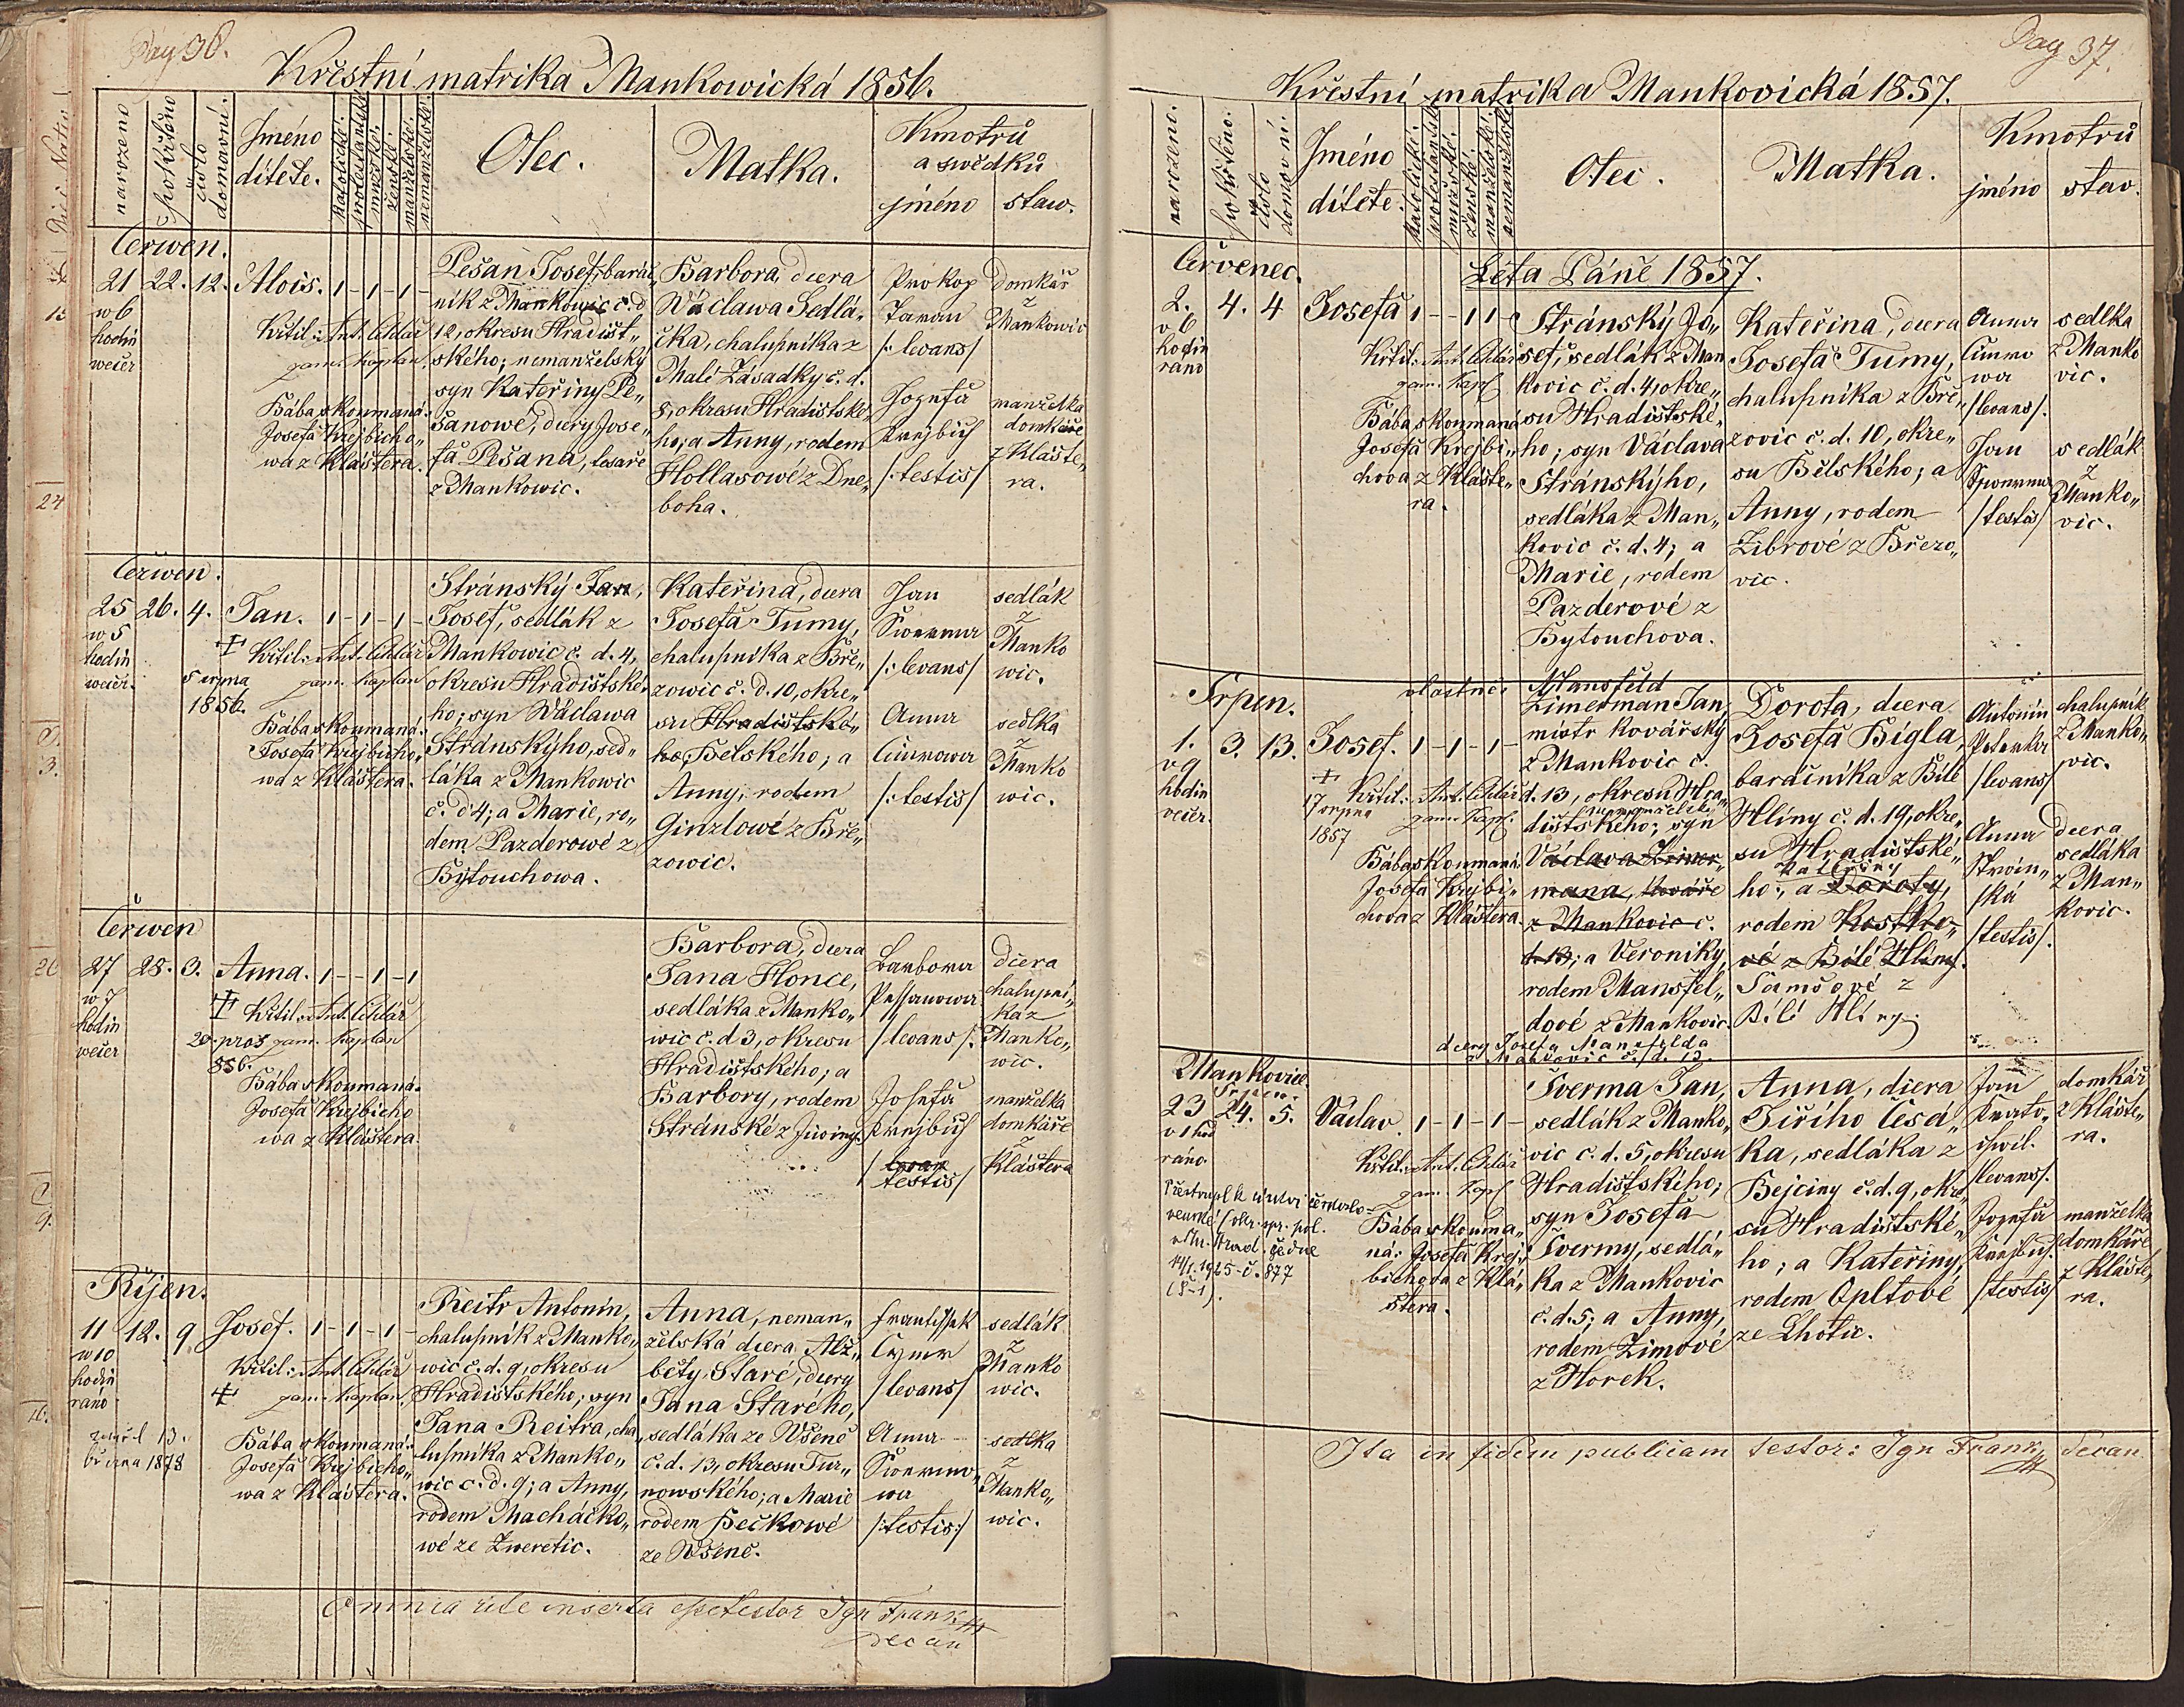 Pag 36.
Křestní matrika Mankowická 1856.
narozeno
pokřtěno
číslo domovní.
Jméno
dítěte.
katolické.
protestantské
mužské.
ženské.
manželské.
nemanželské.
Otec.
Matka.
Kmotrů
a swědků
jméno
staw.
Čerwen.
21 22. 12. Alois. 1 - 1 - 1 -
w 6
hodin
wečer
Křtil: Ant. Cihlář
kaplan.
Bába zkoumaná:
Josefa Krejbicho„
wa z Kláštera.
Pešan Josef, barác„
ník z Mankowic č. d.
12, okresu Hradišt„
ského; nemanželský
syn Kateřiny Pe„
šanowé, dcery Jose„
fa Pešana, tesaře
z Mankowic.
Barbora, dcera
Wáclawa Sedlá„
čka, chalupníka z
Malé Zásadky č. d.
8, okresu Hradištské„
ho; a Anny, rodem
Hollasowé z Dne„
boha.
Prokop
/: levans/
Josefa
Krejbich
/: testis/
Domkář
z
Mankowic
manželka
domkáře
z Klášte„
ra.
Čerwen.
25 26. 4. Jan. 1 - 1 - 1 -
w 5
hodin
wečer.
5 srpna
1856.
Křtil: Ant. Cihlář
kaplan
Bába zkoumaná:
Josefa Krejbicho„
wa z Kláštera.
Stránský Jan,
Josef, sedlák z
Mankowic č. d. 4,
okresu Hradištské„
ho; syn Wáclawa
Stránskýho, sed„
láka z Mankowic
č. d. 4; a Marie, ro„
dem Pazderowé z
Bytouchowa.
Kateřina, dcera
Josefa Tumy,
chalupníka z Bře„
zowic č. d. 10, okre„
su Hradištské„
ho Bělského; a
Anny, rodem
Ginzlowé z Bře„
zowic.
Jan
Šwerma
/: levans/
Anna
Cimrowa
/: testis/
sedlák
z
Manko
wic.
sedlka
z
Manko
wic.
Čerwen
27 28. 3. Anna. 1 - - 1 - 1
hodin
wečer
20. pros
856.
Křtil: Ant. Cihlář
kaplan
Bába zkoumaná:
Josefa Krejbicho
wa z Kláštera.
Barbora, dcera
Jana Honce,
sedláka z Manko„
wic č. d. 3, okresu
Hradištského; a
Barbory, rodem
Stránské z Jiwiny.
Barbora
Pessanowa
/ levans /.
Josefa
Krejbich
/ levan
testis/
dcera
chalupní„
ka z
Manko„
wic.
manželka
domkáře
z
Kláštera
Říjen.
11 12. 9 Josef. 1 - 1 - 1 -
w 10
hodin
ráno
zemřel 13.
března 1878
Křtil: Ant. Cihlář
kaplan.
Bába zkoumaná:
Josefa Krejbicho„
wa z Kláštera.
Reitr Antonín,
chalupník z Manko„
wic č. d. 9, okresu
Hradištského; syn
Jana Reitra, cha„
lupníka z Manko„
wic č. d. 9; a Anny,
rodem Macháčko„
wé ze Zweretic.
Anna, neman„
želská dcera Alž„
běty Staré, dcery
Jana Starého,
sedláka ze Wšeně
č. d. 13, okresu Tur„
nowského; a Marie
rodem Pečkowé
ze Wšeně.
Frantissek
Cymr
/ levans/
Anna
Šwermo„
wa
/: testis:/
sedlák
z
Manko
wic.
sedlka
z
Manko„
wic.
Omnia rite inserta esse testor Ign Frank
Decan
Pag 37.
Křestní matrika Mankovická 1857.
narození.
pokřtěno.
číslo domovní.
Jméno
dítěte.
katolické.
protestantské
mužské.
ženské.
manželské.
nemanželské
Otec.
Matka.
Kmotrů
jméno
stav.
Červenec.
Léta Páně 1857.
2. 4. 4 Josefa 1 - - 1 1 -
v 6
hodin
ráno
Křtil: Ant. Cihlář
kapl.
Bába zkoumaná
Josefa Krejbi„
chova z Klášte„
ra.
Stránský Jo„
sef, sedlák z Man
kovic č. d. 4, okre„
su Hradištské„
ho; syn Václava
Stránskýho,
sedláka z Man„
kovic č. d. 4; a
Marie, rodem
Pazderové z
Bytouchova.
Kateřina, dcera
Josefa Tumy,
chalupníka z Bře„
zovic č. d. 10, okre„
su Bělského; a
Anny, rodem
Zibrové z Březo„
vic.
Anna
Cimro
wa
/levans/.
Jan
Šwerma
/testis/
sedlka
z Manko
vic.
sedlák
z
Manko„
vic.
Srpen.
vlastně:
1. 3. 13. Josef. 1 - 1 - 1 -
v 9
hodin
večer.
17 srpna
1857
Křtil: Ant. Cihlář
kapl.
Bába zkoumaná:
Josefa Krejbi„
chova z Kláštera.
Mansfeld
Zimerman Jan,
mistr kovářský
z Mankovic č.
d. 13, okresu Hra„
nemanželský
dištského; syn
Václava Zimer„
mana, kováře
z Mankovic č.
d. 13; a Veroniky,
rodem Mansfel„
dové z Mankovic.
dcery Josefa Mansfelda
z Mankovic č. d. 13.
Dorota, dcera
Josefa Bígla,
baráčníka z Bílé
Hlíny č. d. 19, okre„
su Hradištské„
Kateřiny
ho; a Doroty,
rodem Kostko„
vé z Bílé Hlíny.
Samšové z
Bílé Hlíny
Antonín
/levans/
Anna
Strán„
ská
/testis/.
chalupník
z Manko„
vic.
dcera
sedláka
z Man„
kovic.
Mankovice.
Srpen.
23 24. 5. Václav. 1 - 1 - 1 -
v 1 hod
ráno.
Přestoupil k církvi českoslo=
venské (okr. spr. pol.
v Mn. Hrad.
14/1. 1925 - č. 877
(8-1).
Křtil: Ant. Cihlář
kapl
Bába zkouma„
ná: Josefa Krej„
bichova z Klá„
štera.
Šverma Jan,
sedlák z Manko„
vic č. d. 5, okresu
Hradištského;
syn Josefa
Švermy, sedlá„
ka z Mankovic
č. d. 5; a Anny,
rodem Zimové
z Horek.
Anna, dcera
Jiřího Čsd„
ka, sedláka z
Bejciny č. d. 9, okre„
su Hradištské„
ho; a Kateřiny,
rodem Opltové
ze Lhotic.
Jan
/levans/.
Josefa
Krejbich
/testis/
domkář
z Klášte„
ra.
manželka
domkáře
z Klášte„
ra.
Ita in fidem publicam testor: Ign Frank Decan